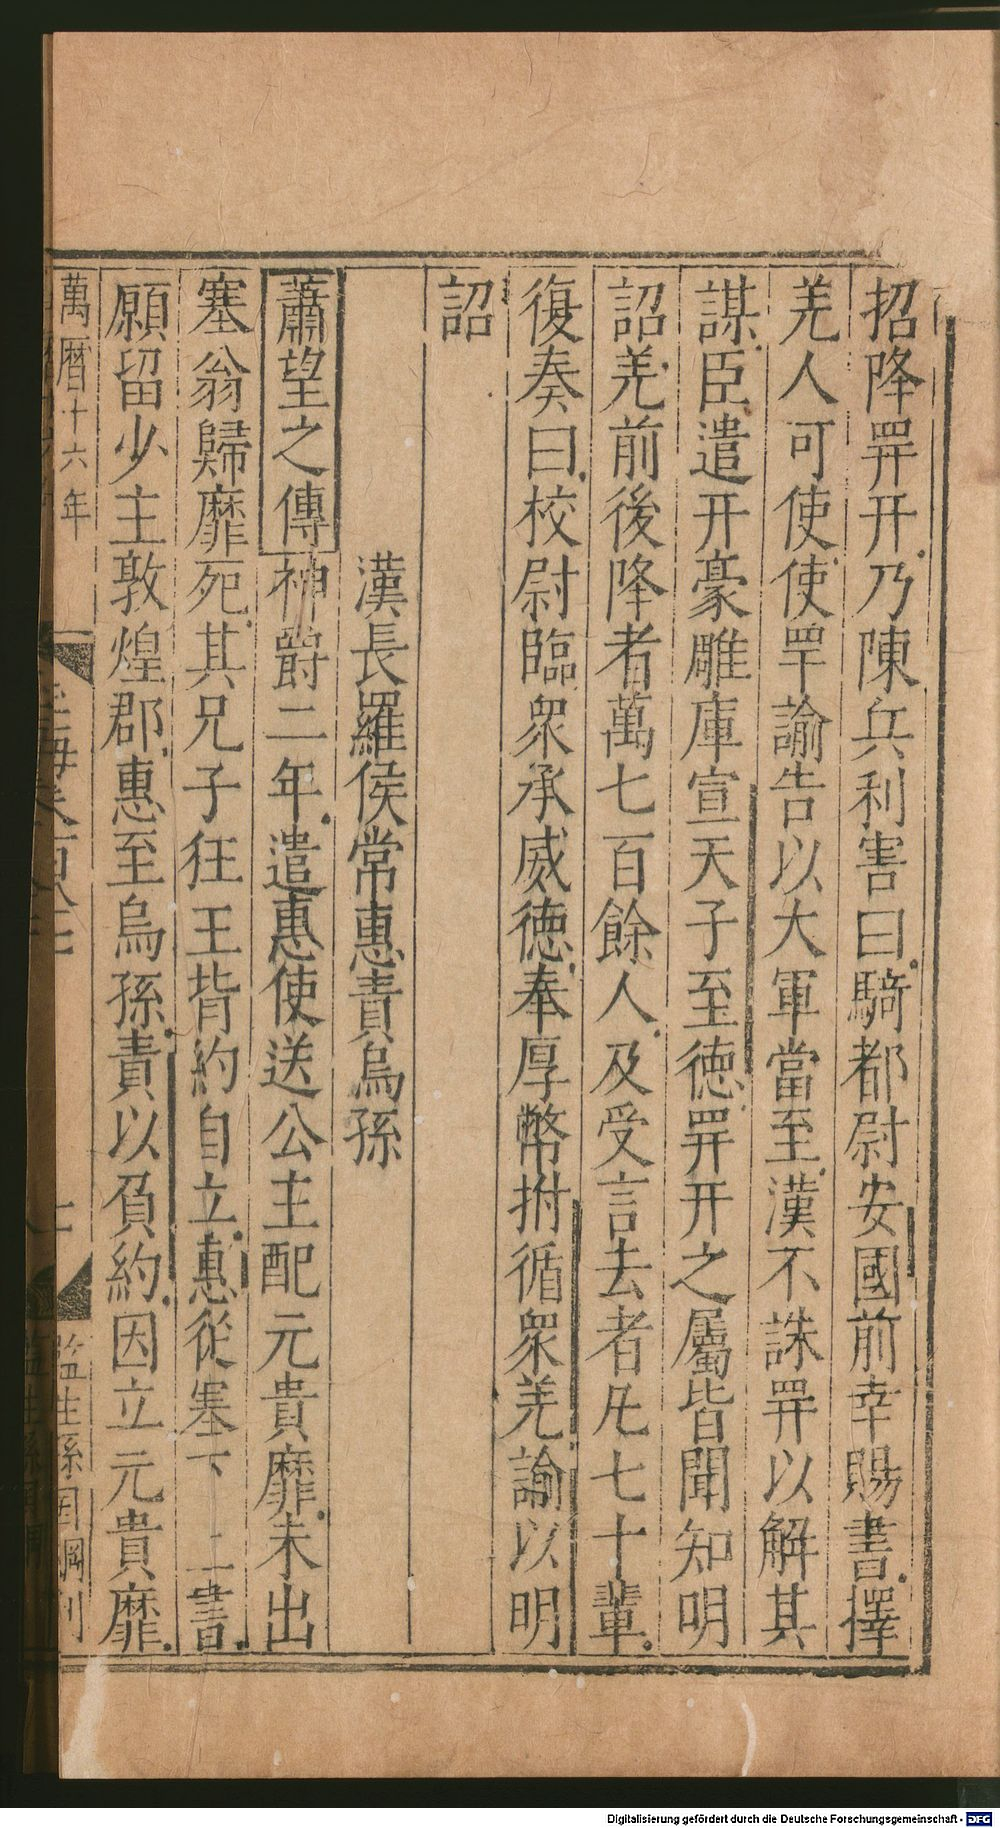 招降䍐幵乃陳兵利害曰騎都尉安國前幸賜書擇
羌人可使使罕諭告以大軍當至漢不誅䍐以解其
謀臣遣幵豪雕庫宣天子至德䍐幵之屬皆聞知明
詔羌前後降者萬七百餘人及受言去者凡七十輩
復奏曰校尉臨衆承威德奉厚幣拊循衆羌諭以明
詔
漢長羅侯常惠責烏孫
蕭望之傳神爵二年遣惠使送公主配元貴靡未出
塞翁歸靡死其兄子狂王背約自立惠從塞下上書
願留少主敦煌郡惠至烏孫責以負約因立元貴靡
萬曆十六年
監生孫
刊
Digitalisierung gefördert durch die Deutsche Forschungsgemeinschaft - DFG